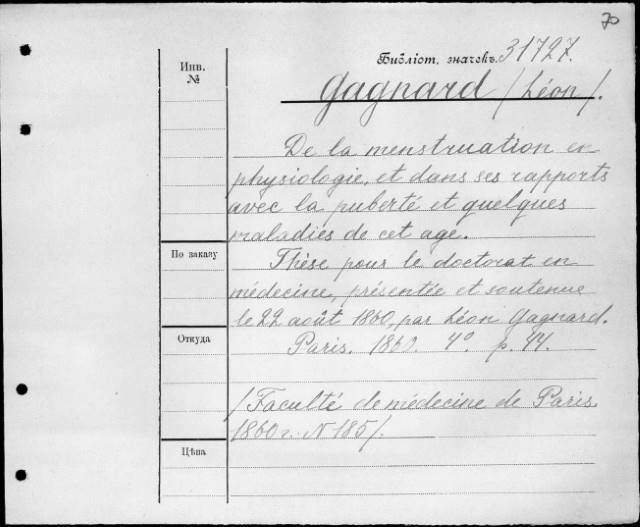 70
Библіот. значекъ 31727.
Инв.
№
Gagnard /Léon/.
De la menstruation en
physiologie, et dans ses rapports
avec la puberté et quelques
maladies de cet age.
По заказу
Thèse pour le doctorat en
médecine, présentée et soutenue
le 22 août 1860, par Léon Gagnard.
Откуда
Paris. 1860. 4° p. 44.
/Faculté de médecine de Paris.
1860 г. N 185/.
Цѣна